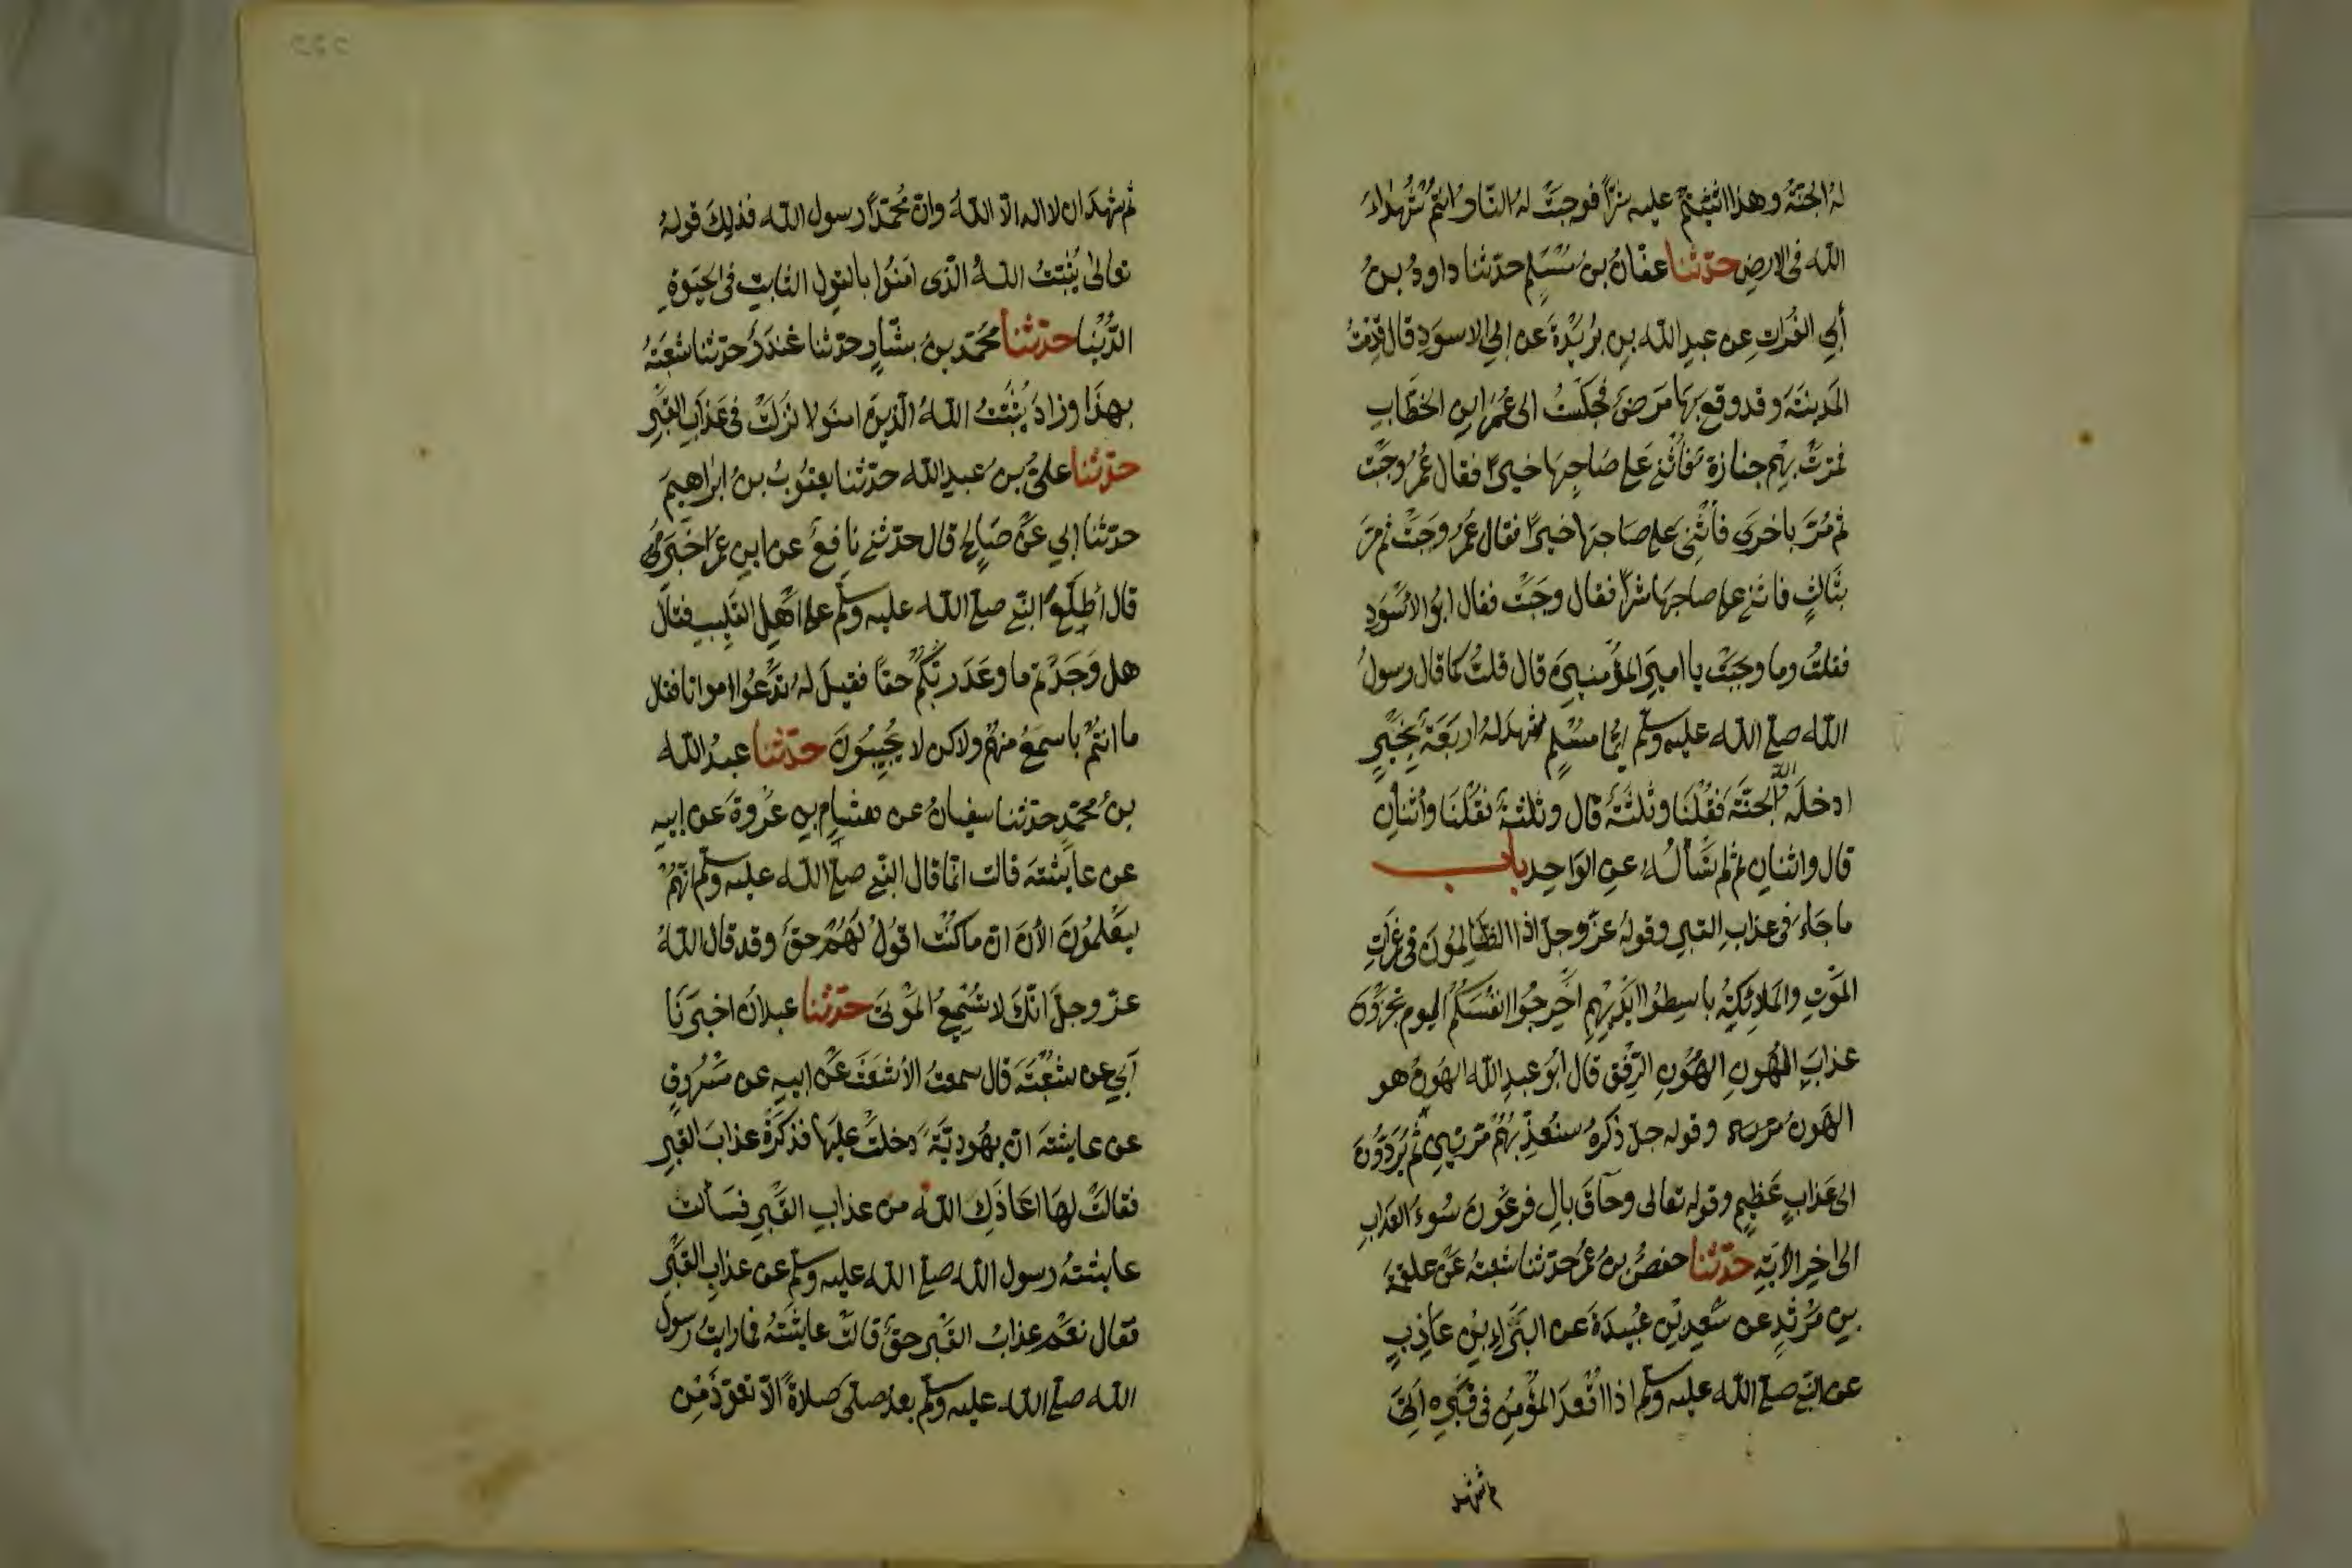 له الجنة وهذا اثنيتم عليه شرًّا فوجبت له النار وانتم شهداء
الله فى الارض حدثنا عفان بن مسلم حدثنا داود بن
أبي الفرات عن عبد الله بن بريدة عن ابي الاسود قال قدمت
المدينة وقد وقع بها مرض فجلست الى عمر ابن الخطاب
فمرت بهم جنازة فأثنى على صاحبها خيرًا فقال عمر وجبت
ثم مر باخرى فأثنى على صاحبها خيرًا فقال عمر وجبت ثم مر
بثالث فاثنى على صاحبها شرًّا فقال وجبت فقال ابو الأسود
فقلت وما وجبت يا امير المؤمنين قال قلت كما قال رسول
الله صلى الله عليه وسلم ايما مسلم شهد له اربعة بخير
ادخله الله الجنة فقلنا وثلثة قال وثلثة فقلنا واثنان
قال واثنان ثم لم نسأله عن الواحد باب
ما جاء فى عذاب القبر وقوله عز وجل اذا الظالمون فى غمرات
الموت والملائكة باسطوا ايديهم اخرجوا انفسكم اليوم تجزون
عذاب الهون الهون الرفق قال ابو عبد الله الهون هو
الهون وقوله جل ذكره سنعذبهم مرتين ثم يردون
الى عذاب عظيم وقوله تعالى وحاق بال فرعون سوء العذاب
الى اخر الآية حدثنا حفص بن عمر حدثنا شعبة عن علقمة
بن مرثد عن سعد بن عبيدة عن البراء بن عاذب
عن النبى صلى الله عليه وسلم اذا اقعد المؤمن فى قبره اتى
ثم شهد
ثم شهد ان لا اله الا الله وان محمدًا رسول الله فذلك قوله
تعالى يثبت الله الذى امنوا بالقول الثابت فى الحيوة
الدنيا حدثنا محمد بن بشار حدثنا غندر حدثنا شعبة
بهذا وزاد يثبت الله الذين امنوا نزلت فى عذاب القبر
حدثنا على بن عبد الله حدثنا يعقوب بن ابراهيم
حدثنا ابي عن صالح قال حدثنى نافع عن ابن عمر اخبره
قال اطلع النبى صلى الله عليه وسلم على اهل القليب فقال
هل وجدتم ما وعد ربكم حقا فقيل له تدعوا امواتا فقال
ما انتم باسمع منهم ولاكن لا يجيبون حدثنا عبد الله
بن محمد حدثنا سفيان عن هشام بن عروة عن ابيه
عن عايشة قالت انما قال النبى صلى الله عليه وسلم انهم
ليعلمون الأن ان ما كنت اقول لهم حق وقد قال الله
عز وجل انك لا تسمع الموتى حدثنا عبدان اخبرنا
أبي عن شعبة قال سمعت الأشعث عن ابيه عن مسروق
عن عايشة ان يهودية دخلت عليها فذكرت عذاب القبر
فقالت لها اعاذك الله من عذاب القبر فسألت
عايشة رسول الله صلى الله عليه وسلم عن عذاب القبر
فقال نعم عذاب القبر حق قالت عايشة فما رايت رسول
الله صلى الله عليه وسلم بعد صلى صلاة الا تعوذ من